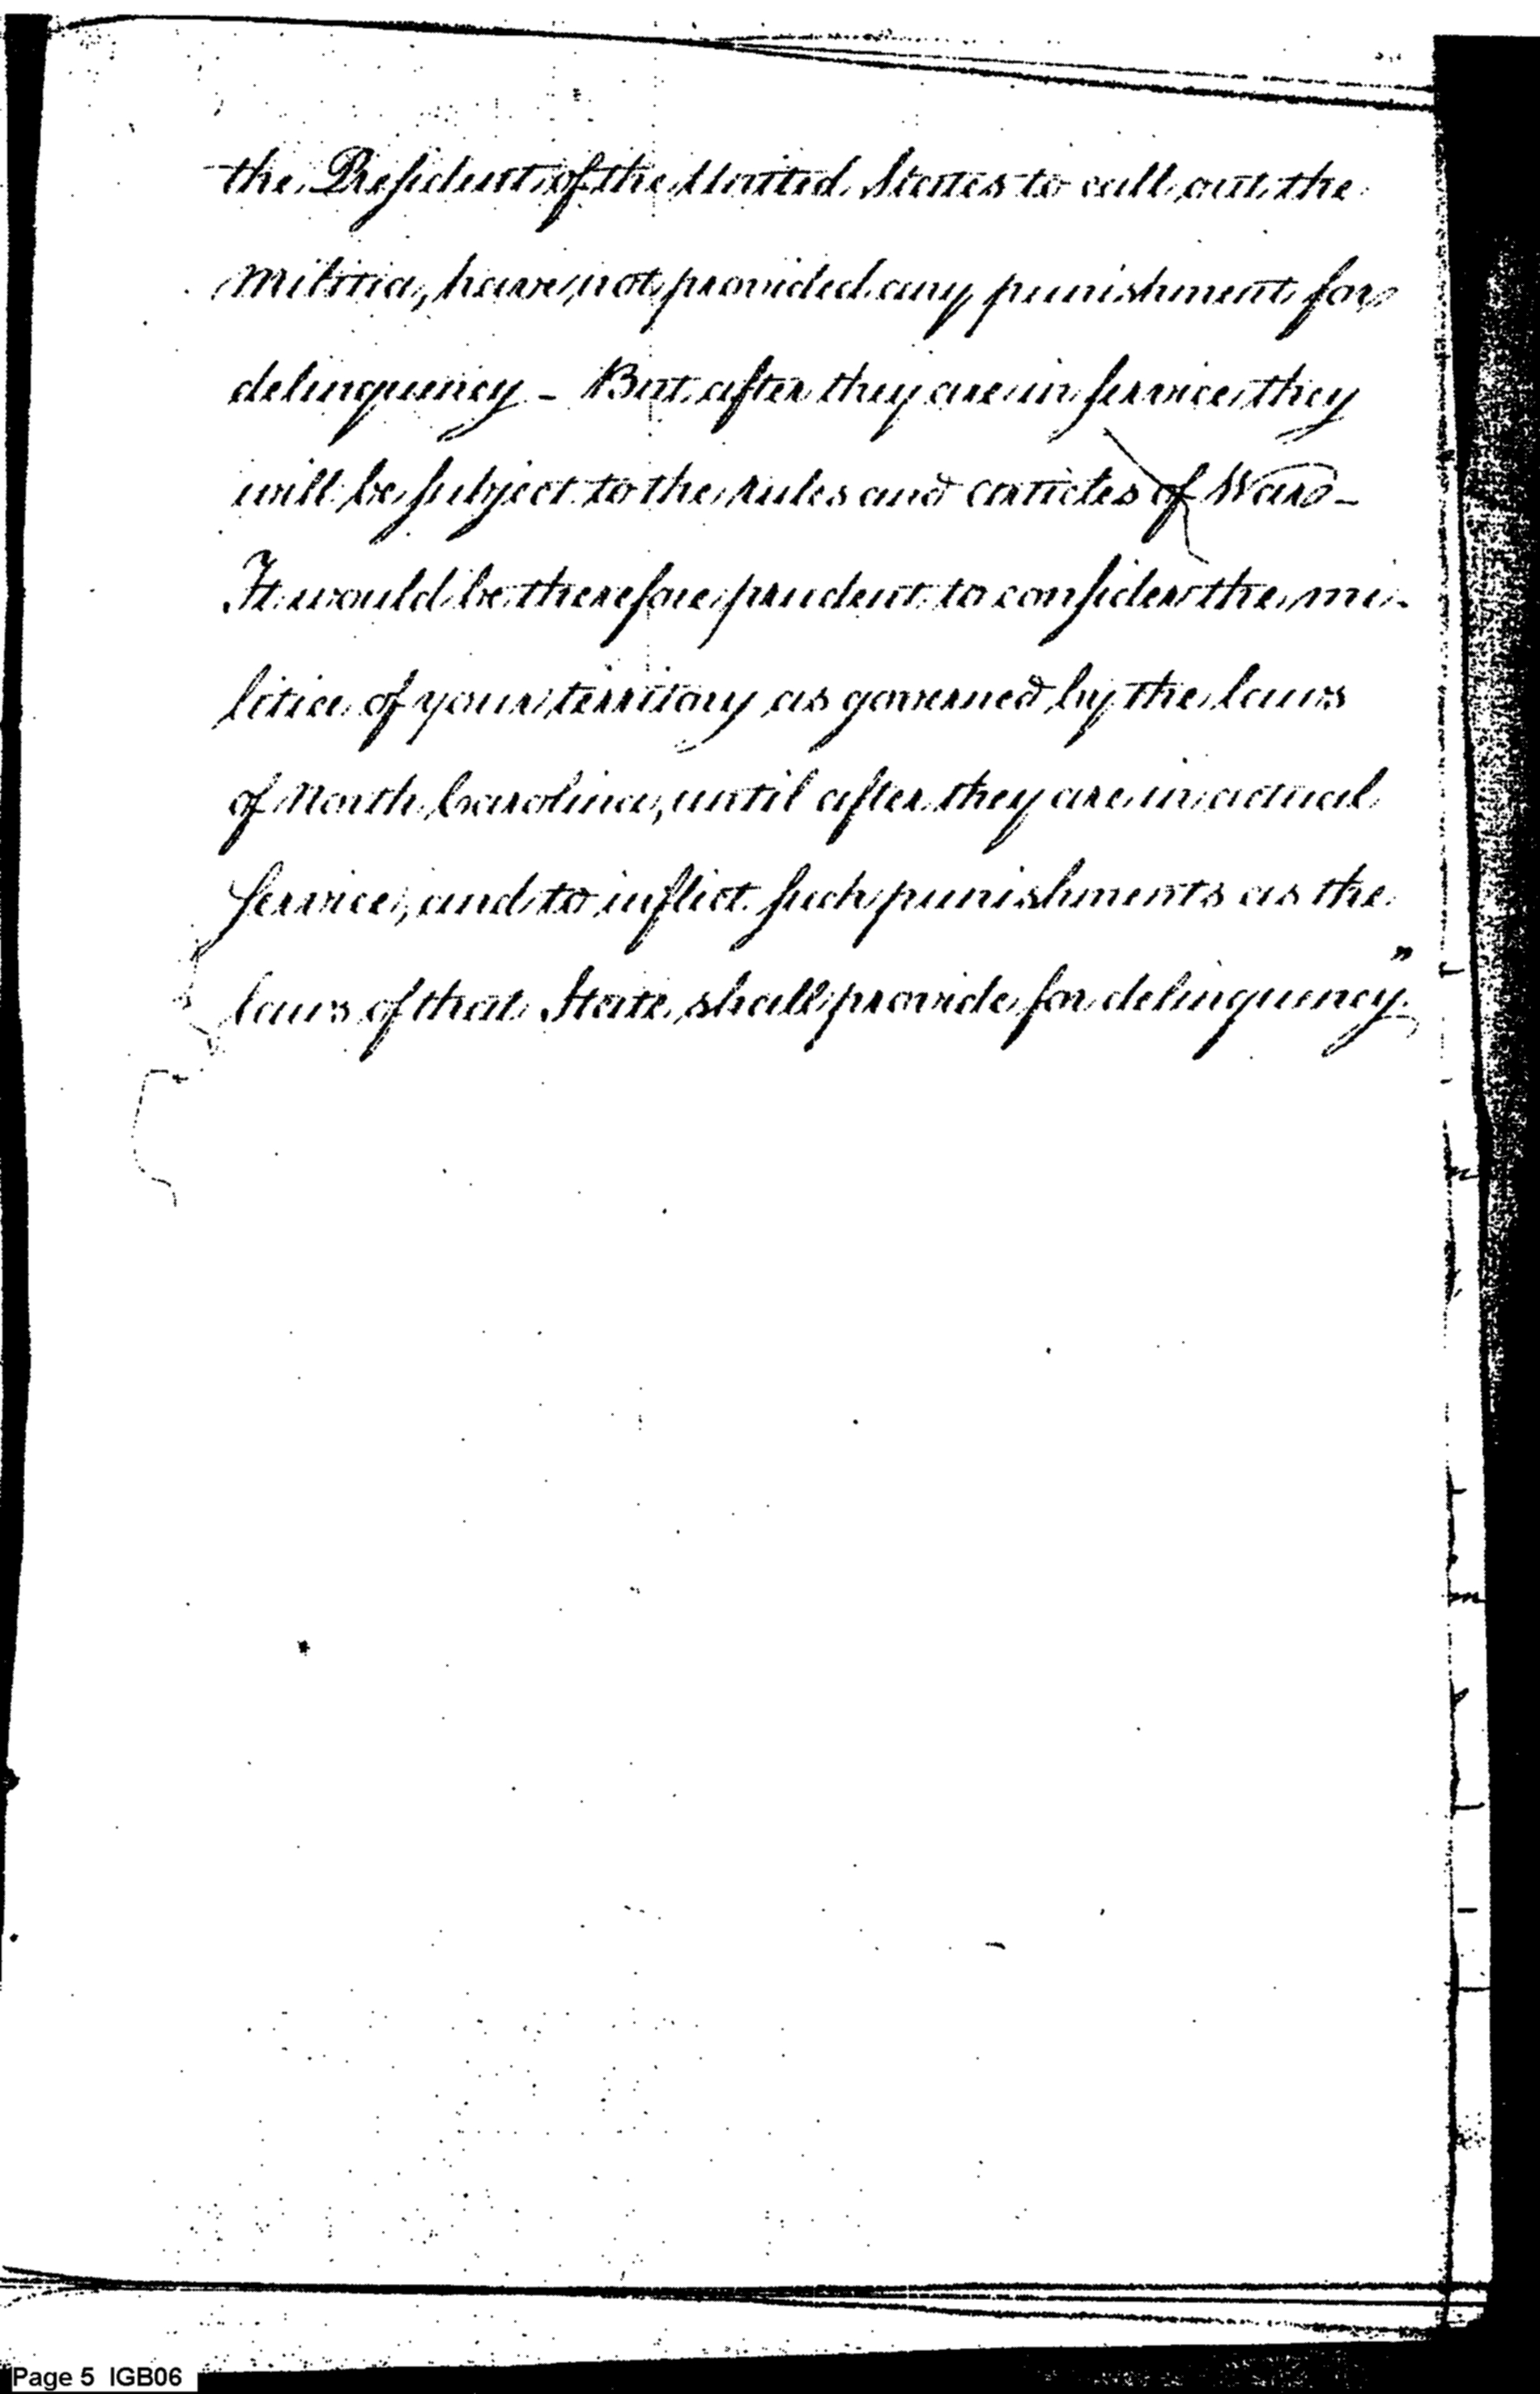 the President of the United States to call out the
militia, have not provided any punishment for
delinquency - But after they are in service they
will be subject to the rules and articles of War -
It would be therefore prudent to consider the mi-
litia of your territory as governed by the laws
of North Carolina, until after they are in actual
service, and to inflict such punishments as the
laws of that State shall provide for delinquency."
Page 5 IGB06